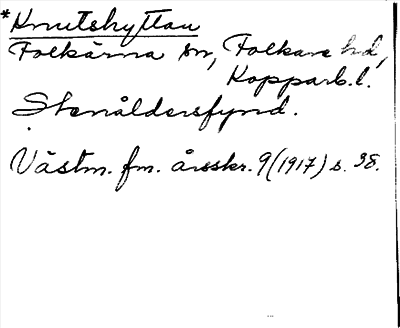 *Knutshyttan
Folkärna sn, Folkare hd,
Kopparb. l.
Stenåldersfynd.
Västm. fm. årsskr. 9 (1917) s. 38.